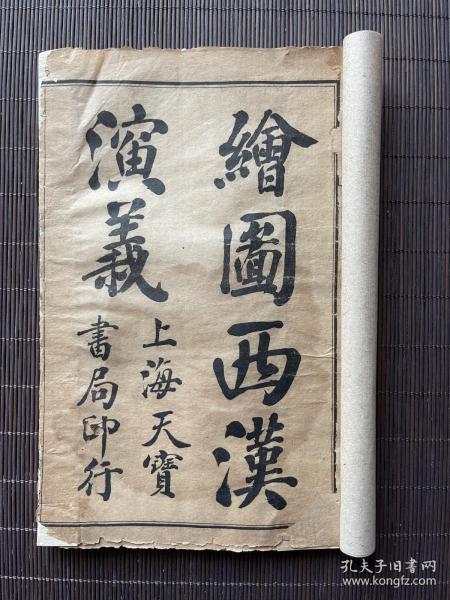 繪圖西漢
演義
上海天寶
書局印行
孔夫子旧书网
www.kongfz.com